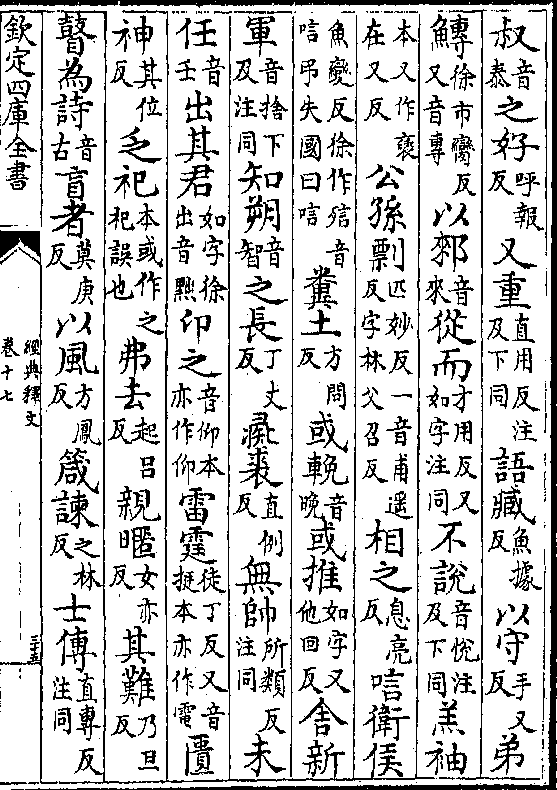 叔音泰之好呼報反又重直用反注及下同語臧魚據反以守手又反弟
鱄徐市臠反又音專以郲音來從而才用反又如字注同不說音悅注及下同羔袖
本又作褎在又反公孫剽匹妙反一音甫遥反字林父召反相之息亮反唁衛侯
魚變反徐作殗音唁弔失國曰唁糞土方問反或輓音晚或推如字又他回反舍新
軍音捨下及注同知朔音智之長丁丈反彘裘直例反無帥所類反注同未
任音壬出其君如字徐出音黜卬之音仰本亦作仰雷霆徒丁反又音挺本亦作電匱
神其位反乏祀本或作之祀誤也弗去起呂反親暱女亦反其難乃旦反
瞽為詩音古盲者莫庚反以風方鳳反箴諫之林反士傳直專反注同
欽定四庫全書
經典釋文
卷十七
三十五